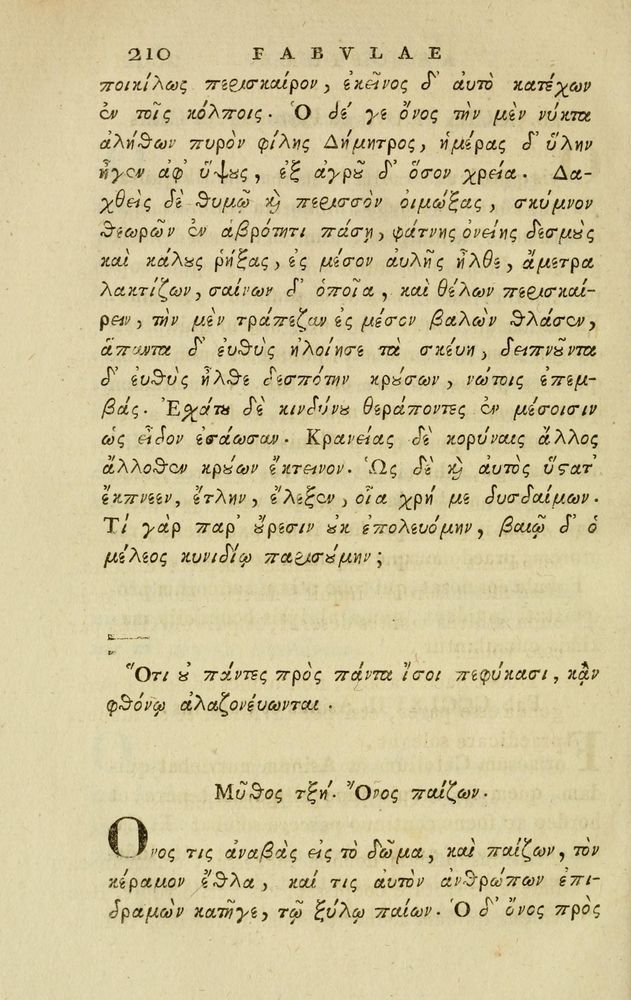 210 FABVLAE
ποικίλως περισκαίρον, ἐκεῖνος δ' αυτὸ κατέχων
ἐν τοῖς κόλποις. Ὁ δέ γε ὄνος τὴν μὲν νύκτα
αλήθων πυρὸν φίλης Δήμητρος, ἡμέρας δ' ὕλην
ἦγεν αφ' ὕψους, ἐξ αγροῦ δ' ὅσον χρεία. Δα-
χθεὶς δὲ θυμῷ καὶ περισσὸν οιμώξας, σκύμνον
θεωρῶν ἐν ἁβρότητι πάσῃ, φάτνης ὀνείης δεσμοὺς
καὶ κάλους ῥήξας, ἐς μέσον αυλῆς ἦλθε, ἄμετρα
λακτίζων, σαίνων δ' ὁποῖα, καὶ θέλων περισκαί-
ρειν, τὴν μὲν τράπεζαν ἐς μέσον βαλὼν θλάσεν,
ἅπαντα δ' ευθὺς ἠλοίησε τὰ σκεύη, δειπνοῦντα
δ' ευθὺς ἦλθε δεσπότην κρούσων, νώτοις ἐπεμ-
βάς. Ἐχάτου δὲ κινδύνου θεράποντες ἐν μέσοισιν
ὡς εἶδον ἐσάωσαν. Κρανείας δὲ κορύναις ἄλλος
ἄλλοθεν κρούων ἔκτεινον. Ὡς δὲ καὶ αυτὸς ὕστατ'
ἐκπνεεν, ἔτλην, ἔλεξεν, οἷα χρή με δυσδαίμων.
Τί γὰρ παρ' ούρεσιν ουκ ἐπολευόμην, βαιῷ δ' ὁ
μέλεος κυνιδίῳ παρισούμην;
Ὅτι ου πάντες πρὸς πάντα ἴσοι πεφύκασι, κἂν
φθόνῳ αλαζονέυωνται.
Μῦθος τξή. Ὄνος παίζων.
Ὄνος τις ἀναβὰς εις τὸ δῶμα, καὶ παίζων, τὸν
κέραμον ἔθλα, καί τις αυτὸν ἀνθρώπων ἐπι-
δραμὼν κατῆγε, τῷ ξύλῳ παίων. Ὁ δ' ὄνος πρὸς